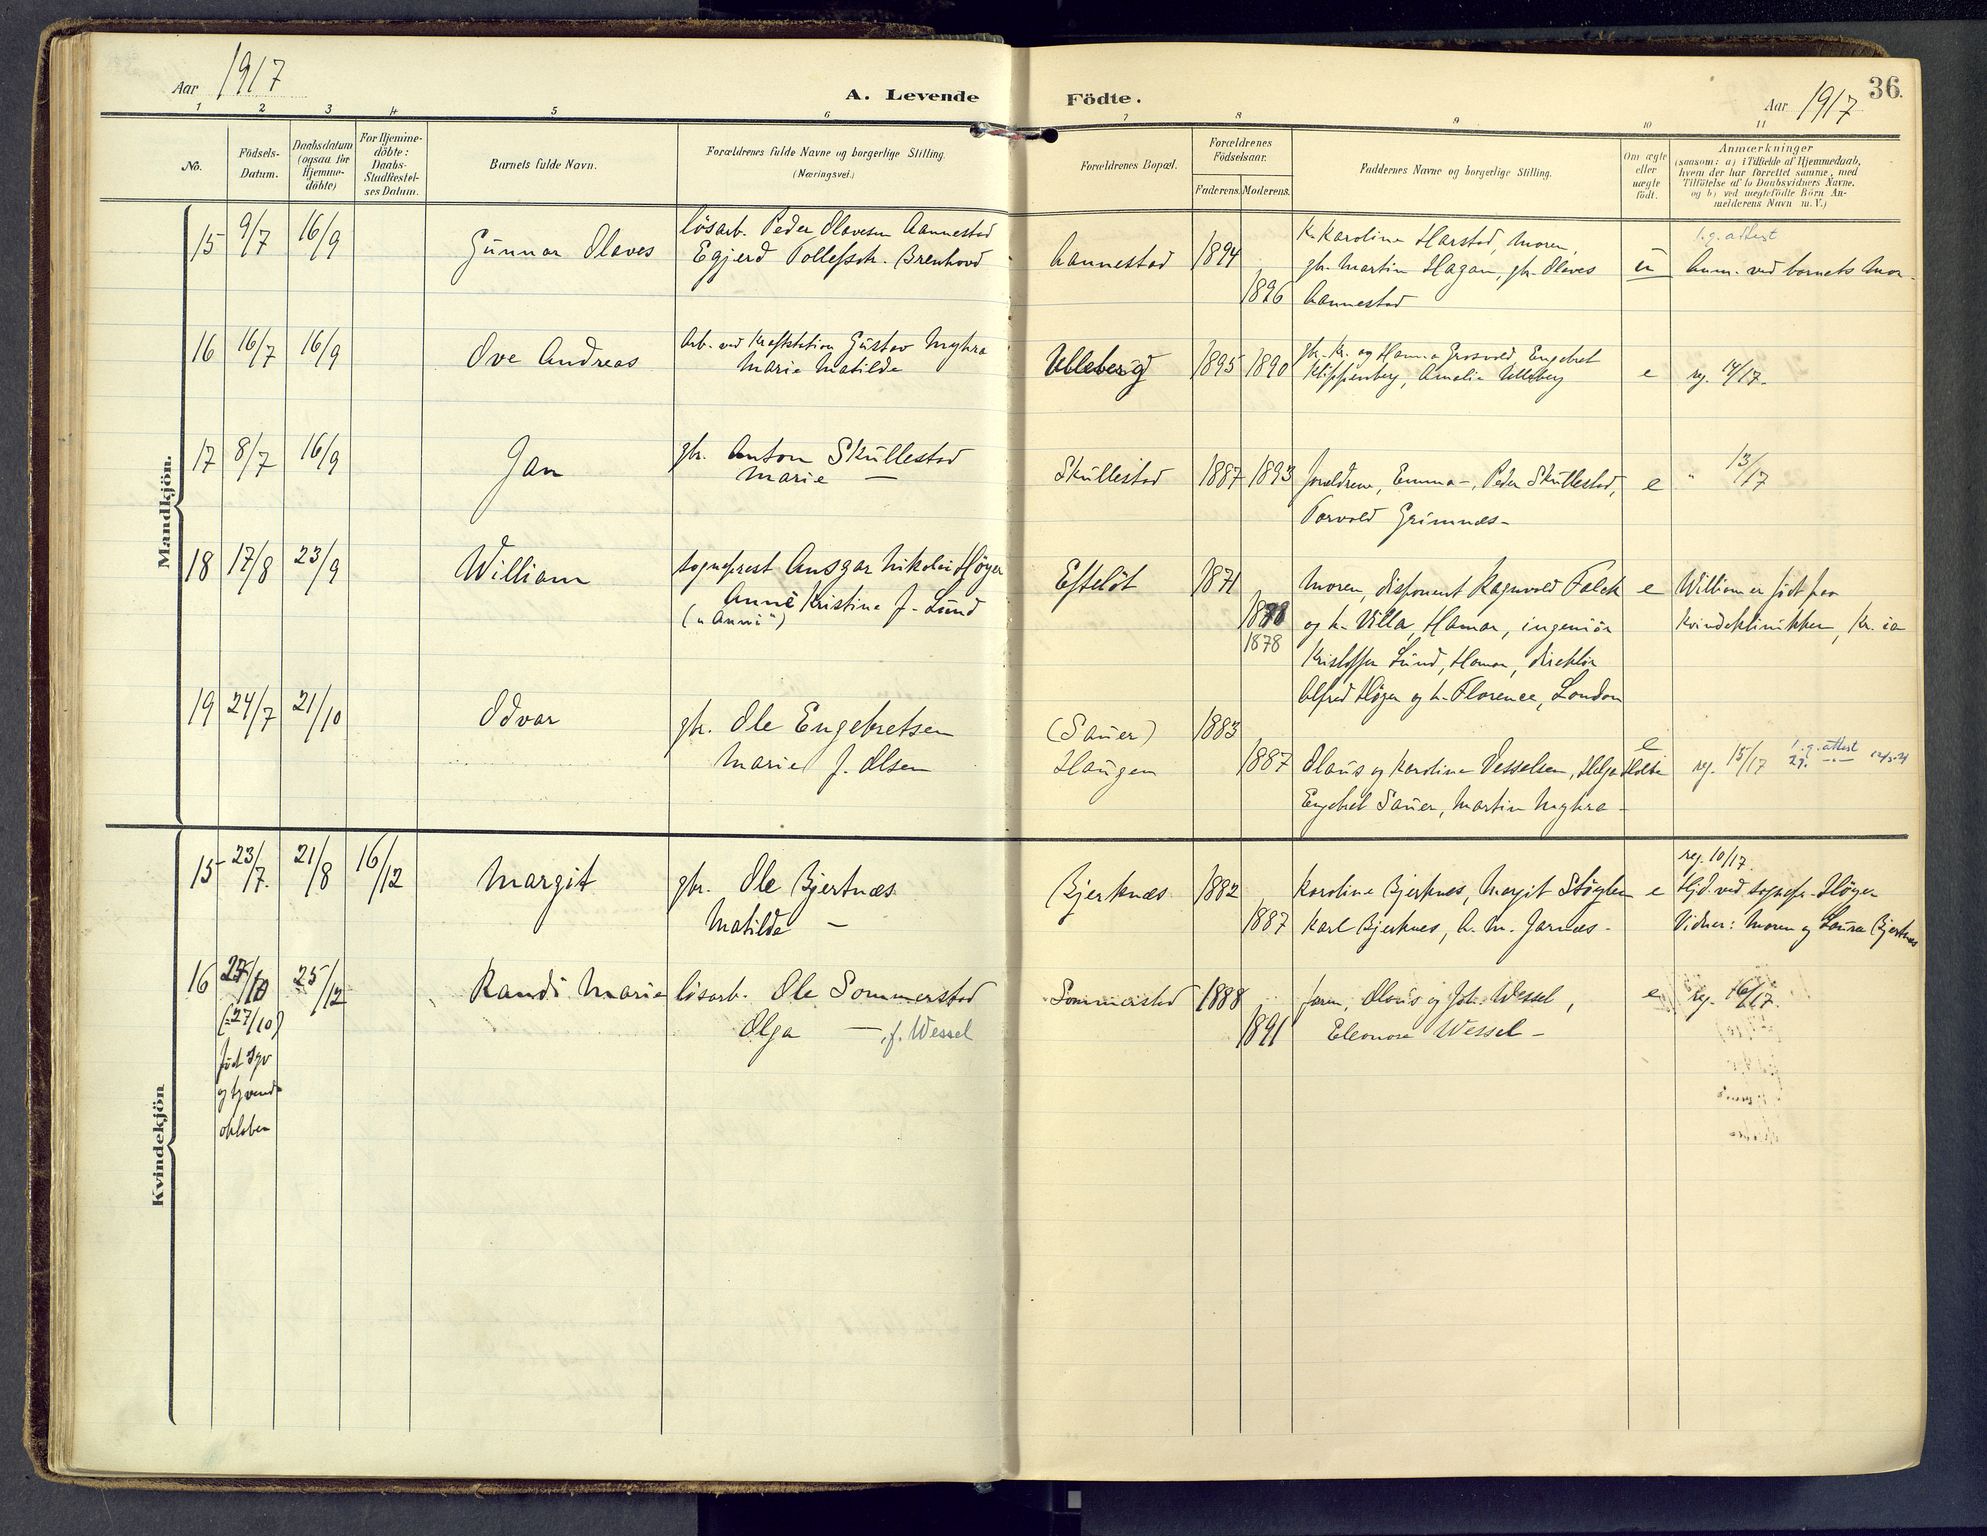 Aar 1917
A. Levende Födte.
Aar 1917
36.
1 2 3 4 5 6 7 8 9 10 11
No.
Födsels-
Datum.
Daabsdatum
(ogsaa for
Hjemme-
döbte)
For Hjemme-
döbte:
Daabs-
Stadfæstel-
ses Datum.
Barnets fulde Navn.
Forældrenes fulde Navne og borgerlige Stilling.
(Næringsvei.)
Forældrenes Bopæl.
Forældrenes
Födselsaar.
Faderens. Moderens.
Faddernes Navne og borgerlige Stilling.
Om ægte
eller
uægte
födt.
Anmærkninger
(saasom: a) i Tilfælde af Hjemmedaab,
hvem der har forrettet samme, med
Tilföielse af to Daabsvidners Navne.
og b) ved uægtefödte Börn An-
melderens Navn m. V.)
Mandkjön.
15 9/7 16/9 Gunnar Olaves
løsarb. Peder Olavesen Aannestad
Egjerd Tollefsdtr. Brenhovd
Aannestad 1894
1896
k. Karoline Harstad, moren,
gbr. Martin Hagan, gbr. Olaves
Aannestad
u
1. g. attest
Anm. ved barnets mor.
16 16/7 16/9 Ove Andreas
Arb. ved Kraftstation Gustav Myhra
Marie Matilde
Ulleberg 1895 1890
gbr. Kr. og Hanna Grosvold, Engebret
Klippenberg, Amalie Ulleberg
e reg. 14/17.
17 8/7 16/9 Jan
gbr. Anton Skullestad
Marie —
Skullestad 1887 1893
foreldrene, Emma -, Peder Skullestad,
Torvald Grimnæs -
e " 13/17
18 17/8 23/9 William
sogneprest Ansgar Nikolai Høyer
Anne Kristine f. Lund
("Anni")
Efteløt 1871
1878
moren, disponent Ragnvald Falck
og h. Villa, Hamar, ingeniør
Kristoffer Lund, Hamar, direktør
Alfred Høyer og h. Florence, London
e
William er født paa
Kvindeklinikken, Kr.ia
19 24/7 21/10 Odvar
gbr. Ole Engebretsen
Marie f. Olsen
(Sauer)
Haugen
1883
1887
Olaus og Karoline Vesselsen, Helga Holte
Engebret Sauer, Martin Myhra -
e
reg. 15/17 1. g. attest
2 g. —
Kvindekjön
15 23/7. 21/8 16/12 Margit
gbr. Ole Bjertnæs
Matilde —
Bjerknæs 1882
1887
Karoline Bjerknes, Margit Støglen
Karl Bjerknes, A. M. Jarnæs -
e
reg. 10/17.
Hjd. ved sognepr. Høyer
Vidner: Moren og Laura Bjertnæs
16 27/10 25/12 Randi Marie
(: 27/10)
født syv
og tyvende
oktober
løsarb. Ole Sommerstad
Olga — f. Wessel
Sommerstad 1888
1891
faren, Olaus og Joh. Wessel,
Eleonora Wessel -
e reg. 16/17.